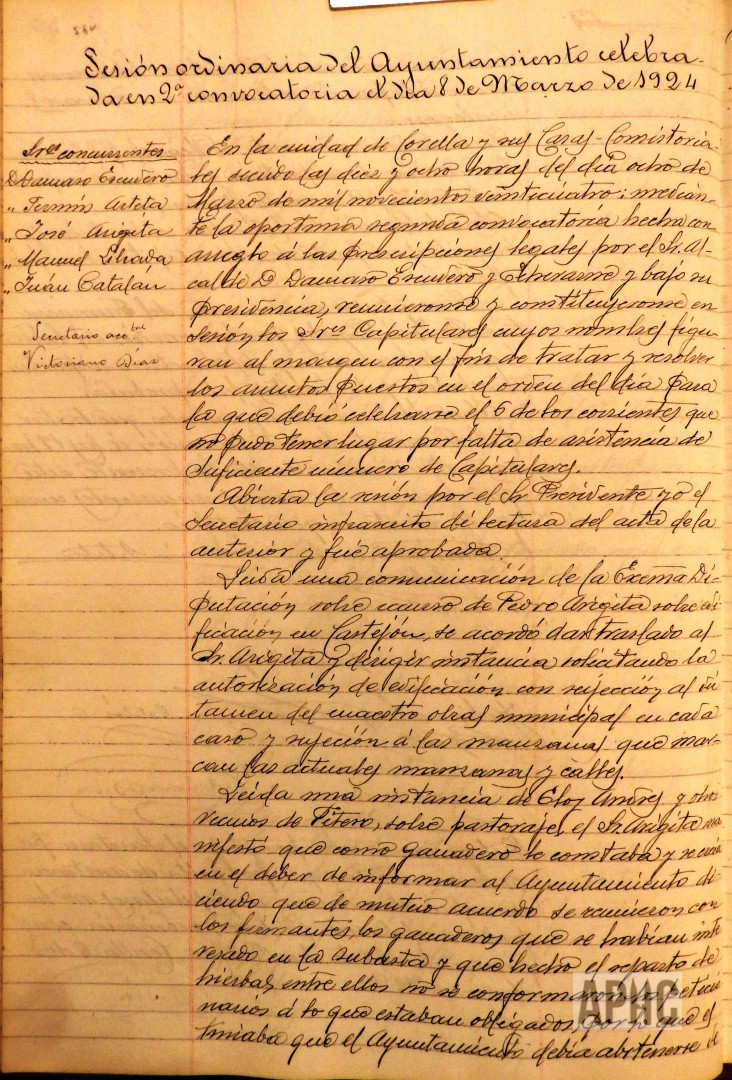 Sesión ordinaria del Ayuntamiento celebra-
da en 2ª convocatoria el día 8 de Marzo de 1924
Sres concurrentes
D Damaso Escudero
" Fermín Arteta
" José Arigita
" Manuel
" Juán Catalán
Secretario acctal
Victoriano Díaz
En la ciudad de Corella y sus Casas-Comistoria-
les siendo las diez y ocho horas del día ocho de
Marzo de mil novecientos veinticuatro; median-
te la oportuna segunda convocatoria hecha con
arreglo á las prescripciones legales por el Sr. Al-
calde D. Damaso Escudero y y bajo su
presidencia, reunieronse y constituyeronse en
sesión los Sres Capitulares cuyos nombres figu-
ran al margen con el fin de tratar y resolver
los asuntos puestos en el orden del día para
la que debió celebrarse el 6 de los corrientes que
no pudo tener lugar por falta de asistencia de
suficiente número de Capitulares.
Abierta la sesión por el Sr Presidente yo el
Secretario infrascrito dí lectura del acta de la
anterior y fué aprobada.
Leída una comunicación de la Excma Di-
putación sobre recurso de Pedro Arigita sobre edi-
ficación en Castejón, se acordó dar traslado al
Sr. Arigita y dirigir instancia solicitando la
autorización de edificación con sujección al dic
tamen del maestro obras municipal en cada
caso y sujeción á las manzanas que mar-
can las actuales manzanas y calles.
Leída una instancia de Eloy Andres y otros
vecinos de Fitero, sobre pastoraje, el Sr. Arigita ma
nifestó que como ganadero le constaba y se creía
en el deber de informar al Ayuntamiento di-
ciendo que de mutuo acuerdo se reunieron con
los firmantes, los ganaderos que se habían inte
resado en la subasta y que hecho el reparto de
hierbas entre ellos no se conformaron los peticio
narios á lo que estaban obligados, por lo que es
timaba que el Ayuntamiento debía abstenerse d
APHC